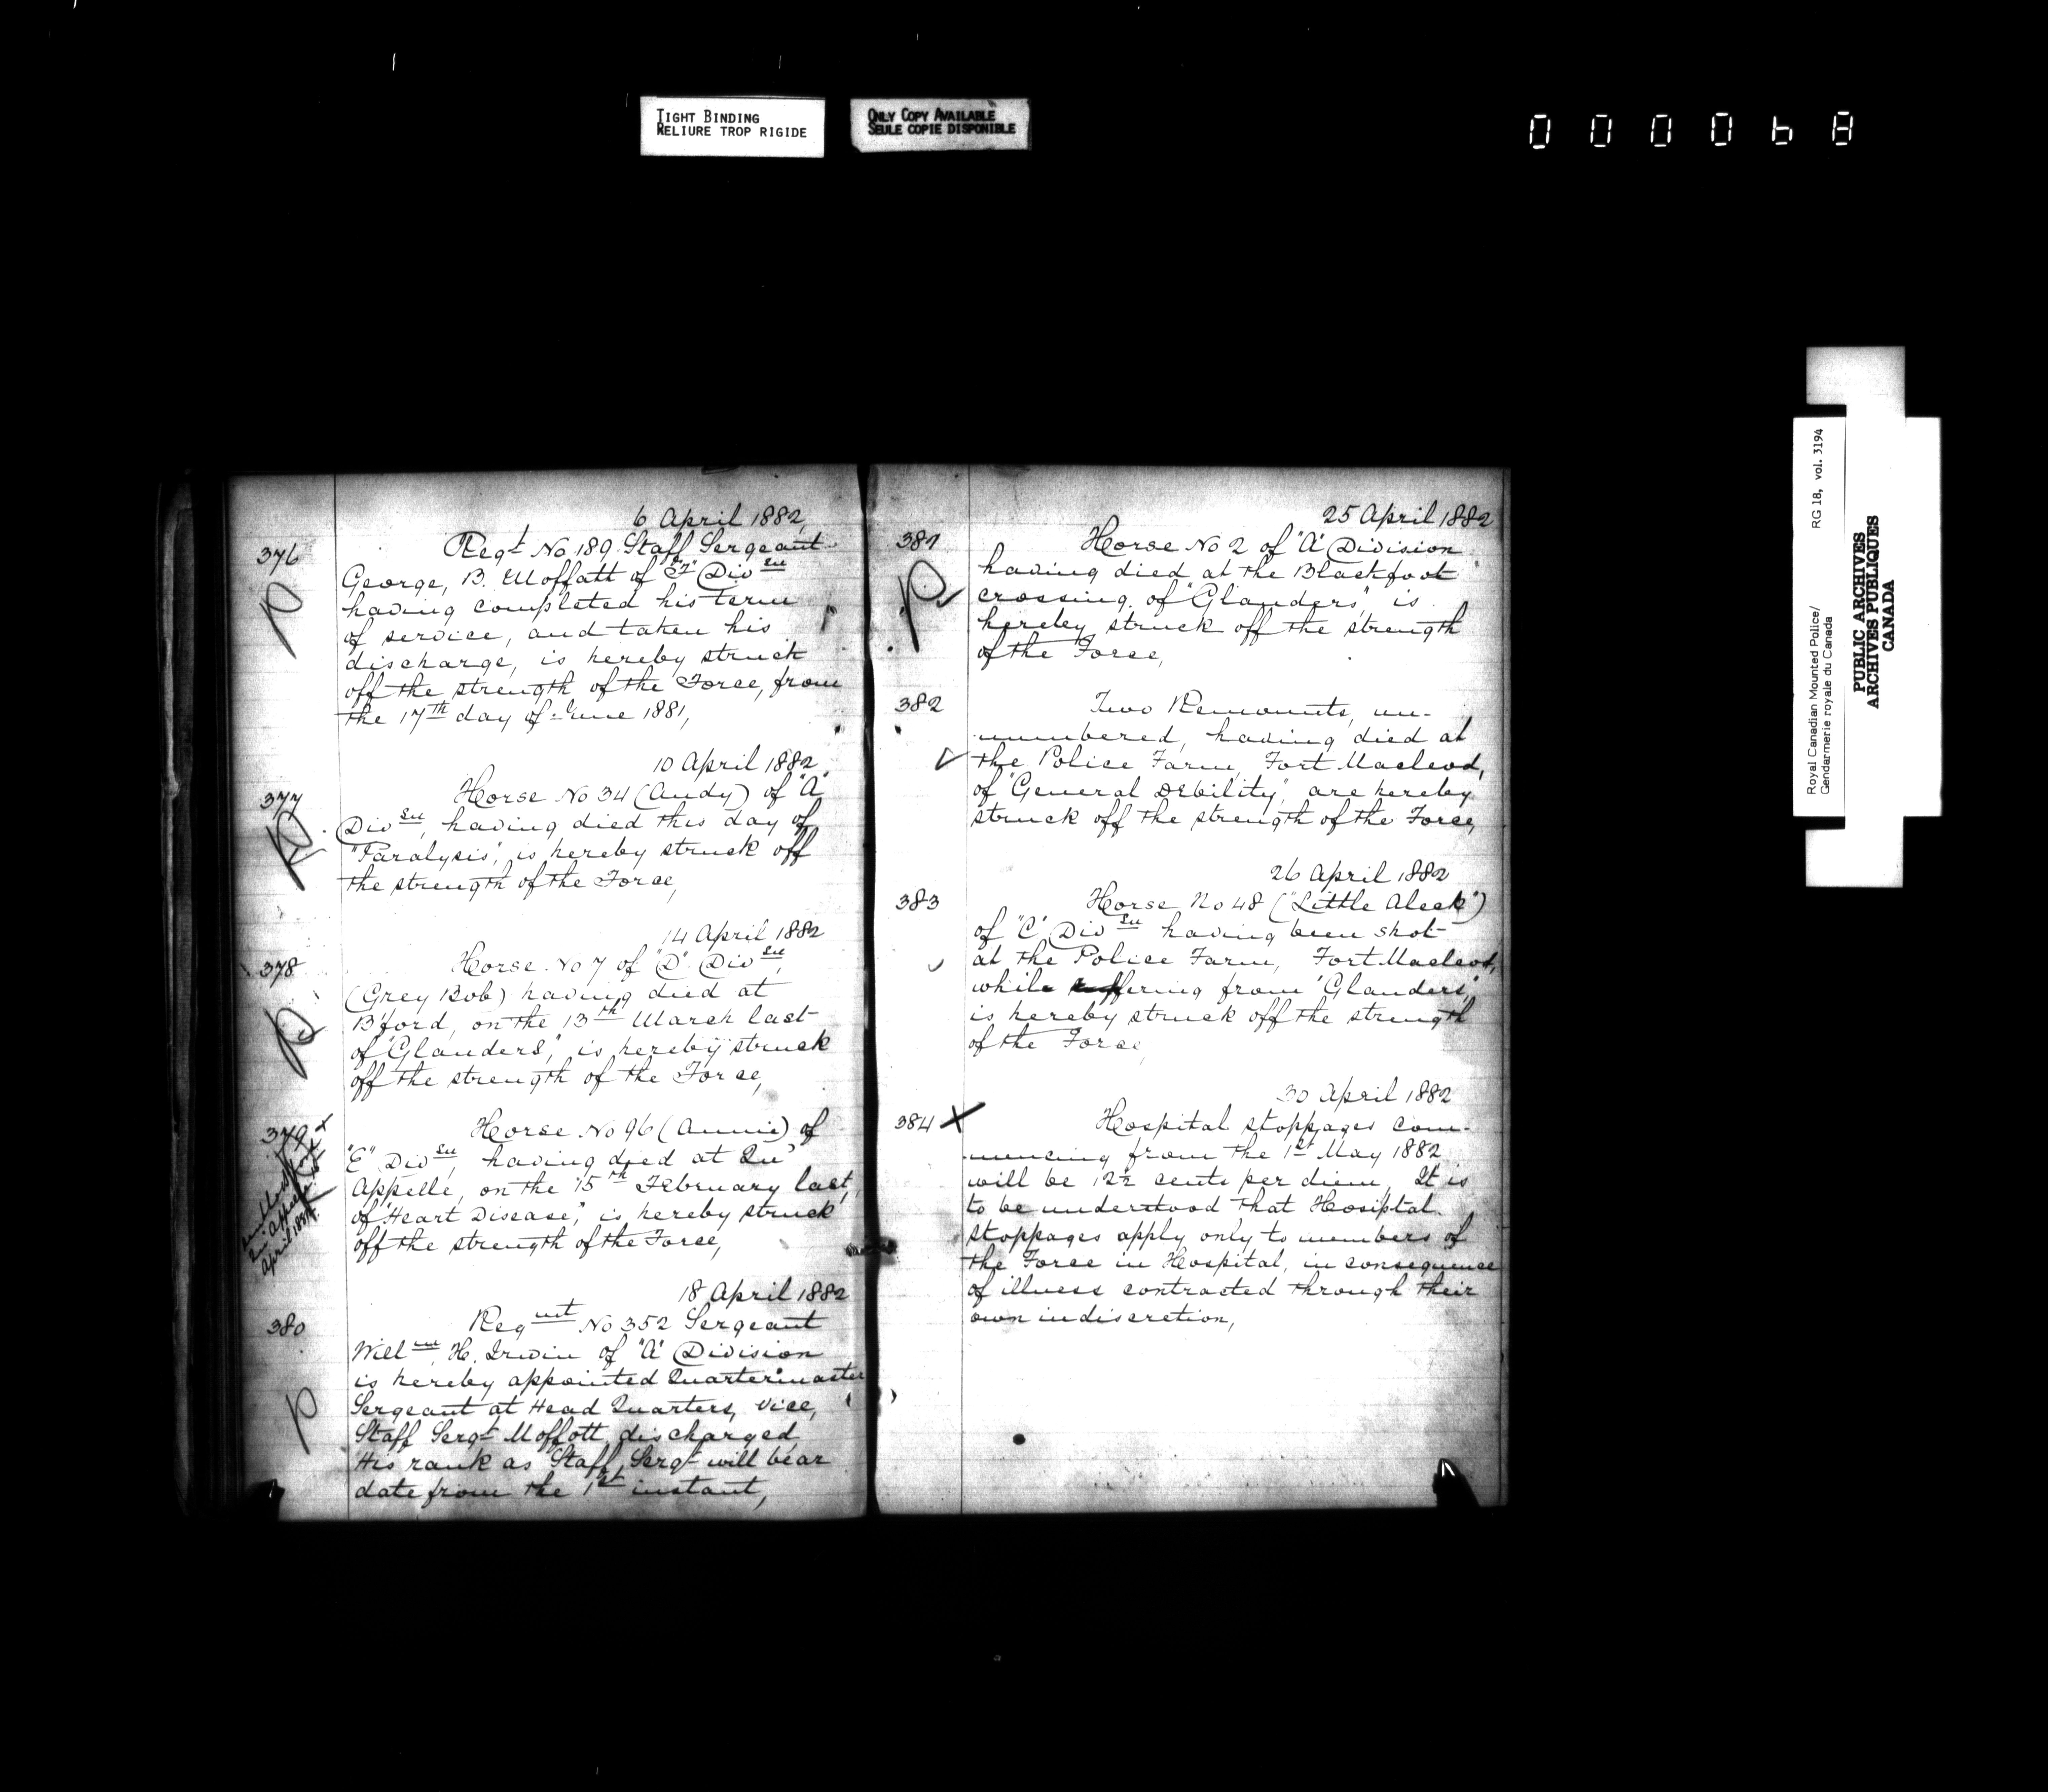 TIGHT BINDING
RELIURE TROP RIGIDE
ONLY COPY AVAILABLE
SEULE COPIE DISPONIBLE
6 April 1882,
376
Regt No 189 Staff Sergeant
George, B. Moffatt of "F" Divsn
having completed his term
of service, and taken his
discharge, is hereby struck
off the strength of the Force, from
the 17th day of June 1881,
10 April 1882
377
Horse No 34 (Andy) of "A"
Divsn, having died this day of
"Paralysis", is hereby struck off
the strength of the Force,
14 April 1882
378
Horse No 7 of "D" Divsn,
(Grey Bob) having died at
B'ford, on the 13th March last
of "Glanders", is hereby struck
off the strength of the Force,
379
Horse No 96 (Annie) of
"E" Divsn, having died at Qu'
Appelle, on the 15th February last,
of "Heart Disease", is hereby struck
off the strength of the Force,
Qu'Appelle
April 1884.
18 April 1882
380
Regmt No 352 Sergeant
Willm H. Irwin of "A" Division
is hereby appointed Quartermaster
Sergeant at Head Quarters, vice,
Staff Sergt Moffott discharged
His rank as Staff Sergt will bear
date from the 1st instant,
25 April 1882
381
Horse No 2 of "A" Division
having died at the Blackfoot
crossing of "Glanders", is
hereby struck off the strength
of the Force,
382
Two Remounts, un-
numbered, having died at
the Police Farm, Fort Macleod,
of "General Debility", are hereby
struck off the strength of the Force,
26 April 1882
383
Horse No 48 ("Little Aleck")
of "C" Divsn having been shot
at the Police Farm, Fort Macleod,
while suffering from "Glanders",
is hereby struck off the strength
of the Force,
30 April 1882
384 X
Hospital stoppages com-
mencing from the 1st May 1882
will be 12½ cents per diem, It is
to be understood that Hosiptal
stoppages apply only to members of
the Force in Hospital, in consequence
of illness contracted through their
own indiscretion,
Royal Canadian Mounted Police/
Gendarmerie royale du Canada
RG 18, vol. 3194
PUBLIC ARCHIVES
ARCHIVES PUBLIQUES
CANADA